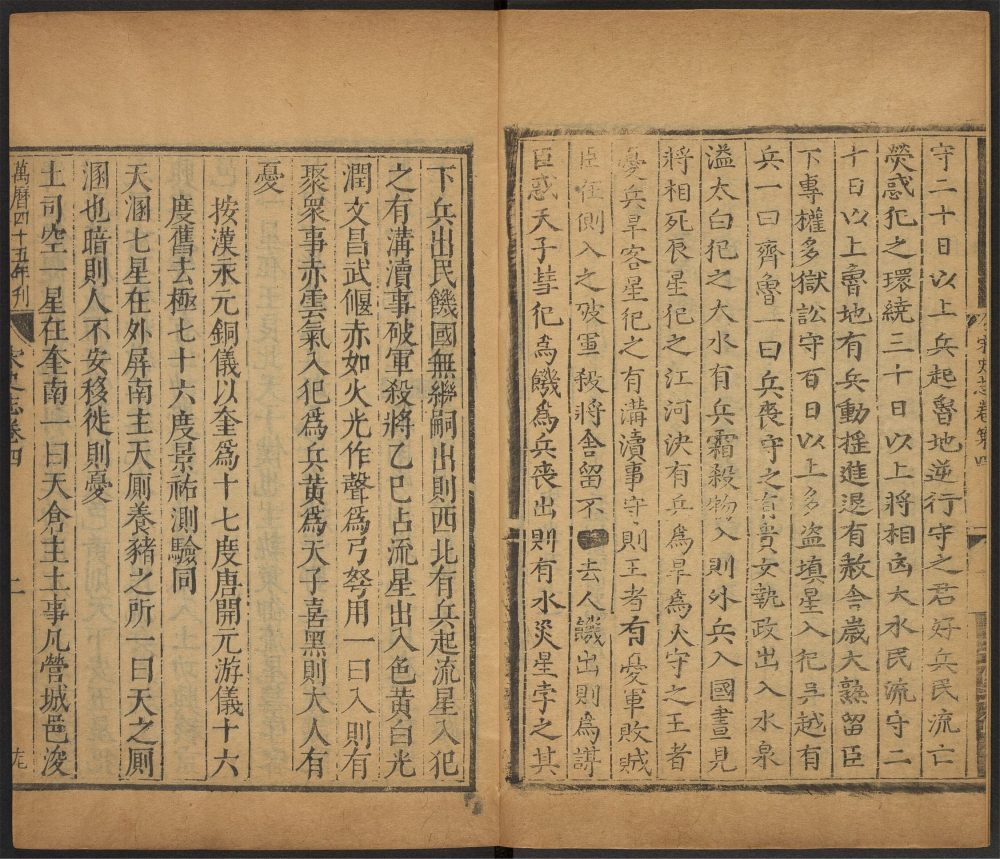 宋史志卷第四
守二十日以上兵起魯地逆行守之君好兵民流亡
熒惑犯之環繞三十日以上將相凶大水民流守二
十日以上魯地有兵動搖進退有赦舍歲大熟留臣
下專權多獄訟守百日以上多盜填星入犯吳越有
兵一曰齊魯一曰兵喪守之有貴女執政出入水泉
溢太白犯之大水有兵霜殺物入則外兵入國晝見
將相死辰星犯之江河決有兵爲旱爲火守之王者
憂兵旱客星犯之有溝瀆事守則王者有憂軍敗賊
臣在側入之破軍殺將舍留不去人饑出則爲讒
臣惑天子彗犯爲饑爲兵喪出則有水災星孛之其
下兵出民饑國無繼嗣出則西北有兵起流星入犯
之有溝瀆事破軍殺將乙巳占流星出入色黃白光
潤文昌武偃赤如火光作聲爲弓弩用一曰入則有
聚衆事赤雲氣入犯爲兵黃爲天子喜黑則大人有
憂
按漢永元銅儀以奎爲十七度唐開元游儀十六
度舊去極七十六度景祐測驗同
天溷七星在外屏南主天厠養豬之所一曰天之厠
溷也暗則人不安移徙則憂
土司空一星在奎南一曰天倉主土事凡營城邑浚
萬曆四十五年刊
宋史志卷四
上